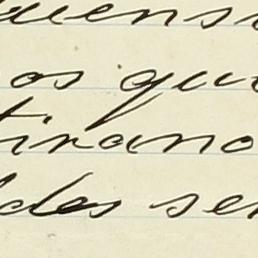 uens
os qu
tirano
des se